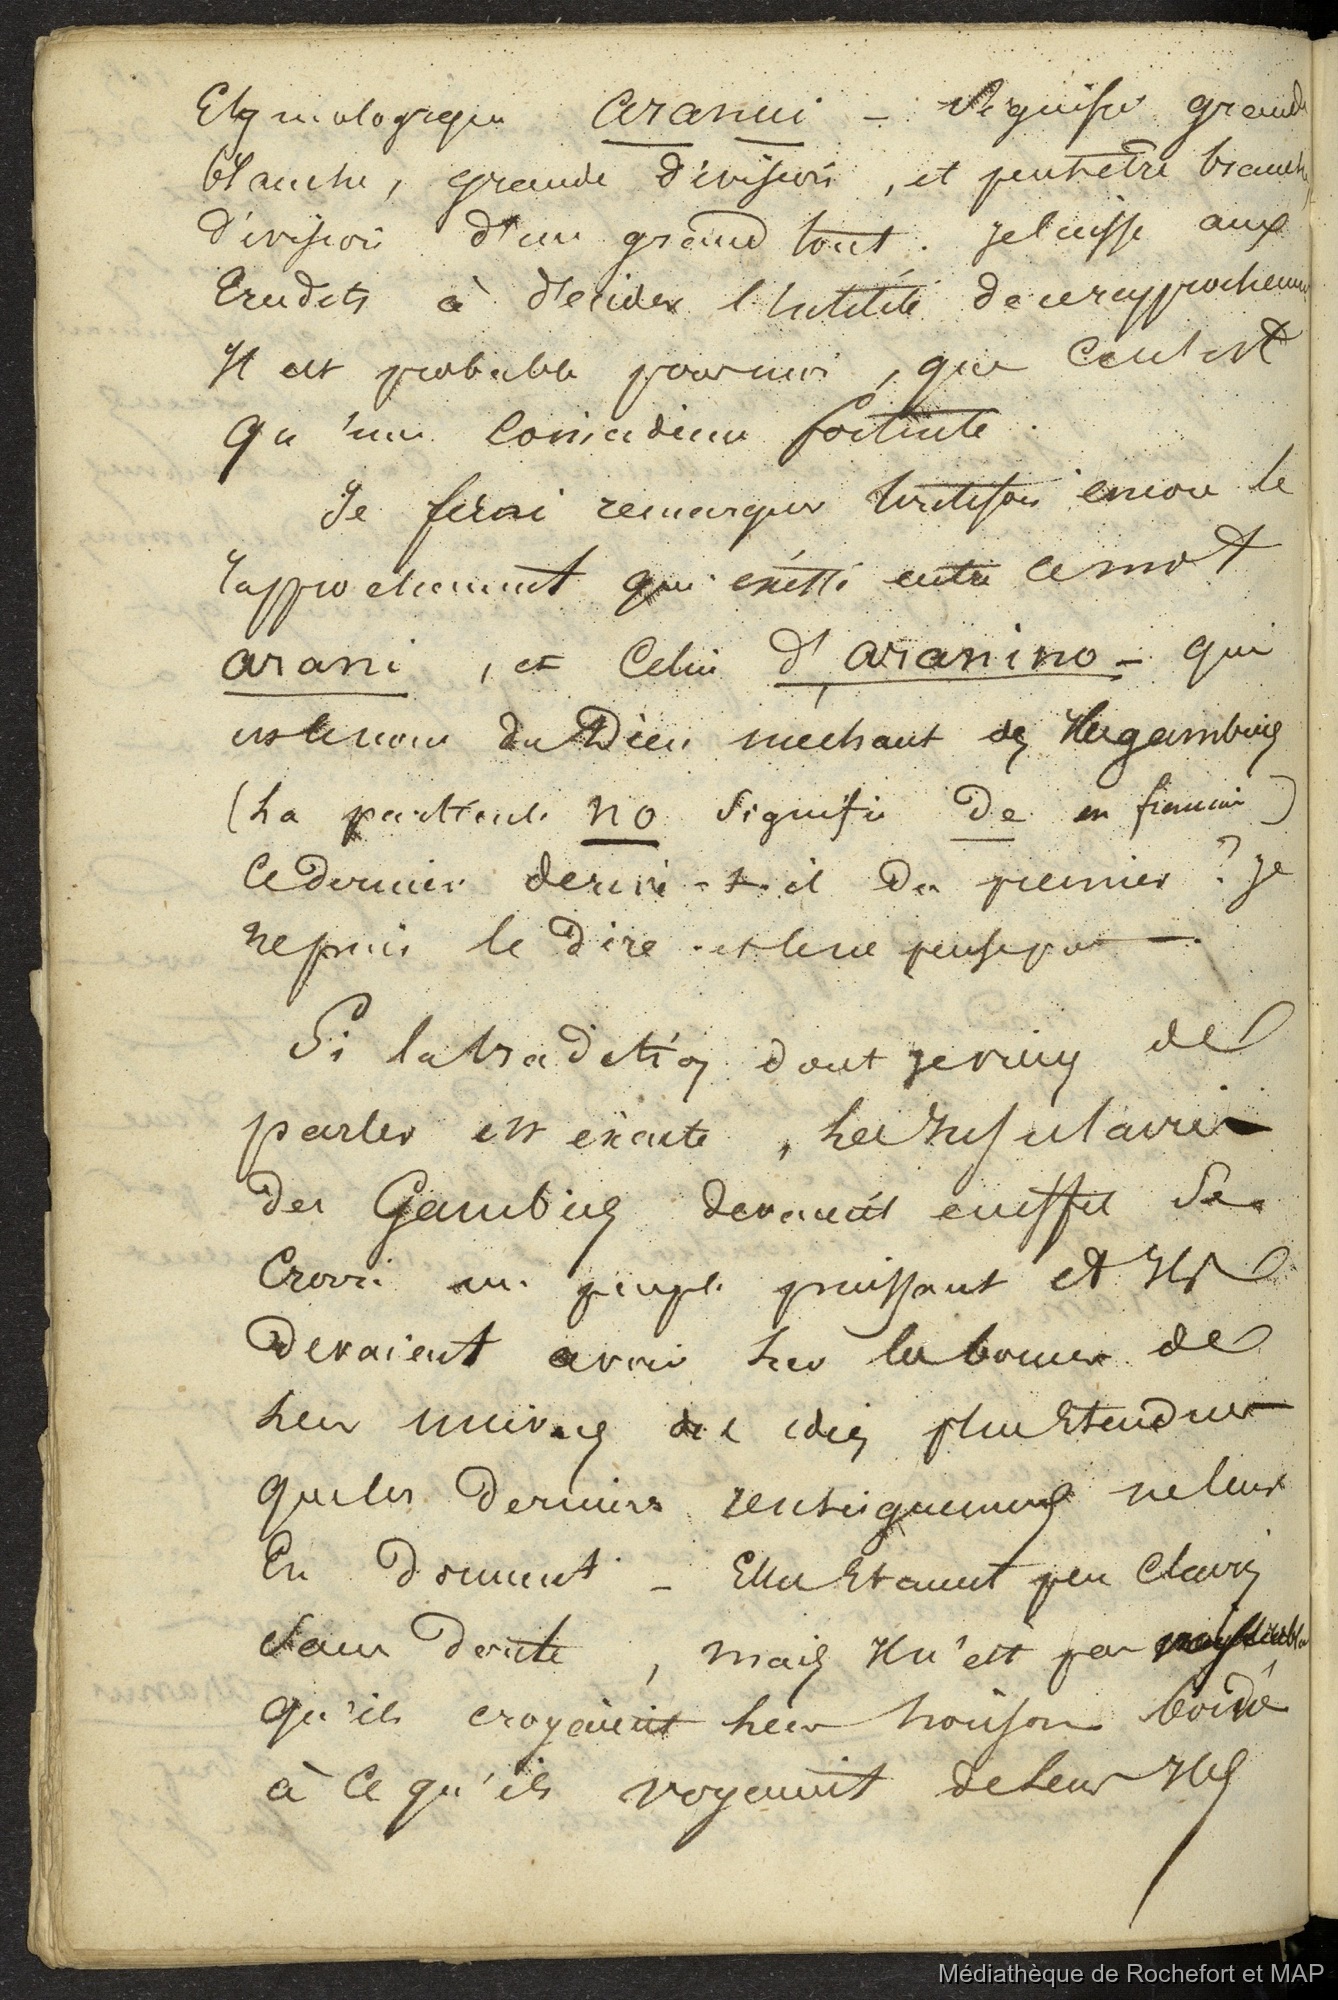 Etymologique aranui - signifie grande
blanche, grande division, et peut-etre branche,
division d'un grand tout. je laisse aux
Erudits à décider l'utilité de ce rapprochement
Il est probable pour moi, que ce n'est
qu'une coincidence fortuite.
Je ferai remarquer toutefois encore le
rapprochement qui existe entre ce mot
arani, et celui d'aranino - qui
est le nom du Dieu méchant des Iles gambiers
(La particule no signifie De en francais)
Ce dernier derive-t-il du premier ? Je
ne puis le dire et le ne pense pas -.
Si la tradition dont je viens de
parler est éxacte, les Insulaires
des Gambiers devaient en effet se
croire un peuple puissant et Ils
devaient avoir sur les bornes de
leur univers des idées plus Etendues
que les derniers renseignements ne leur
En donnent. - Elles Etaient peu claires
sans doute, mais Il n'est pas
qu'ils croyaient leur horison borné
à ce qu'ils voyaient de leurs Iles
Médiathèque de Rochefort et MAP